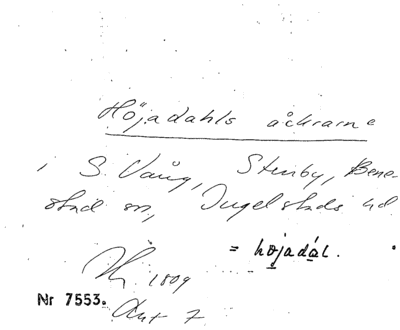 Höjadahls åkrarne
i S. Vång, Stenby, Bene-
stad sn, Ingelstads hd
= höjadál.
1809
Nr 7553.
Akt 7